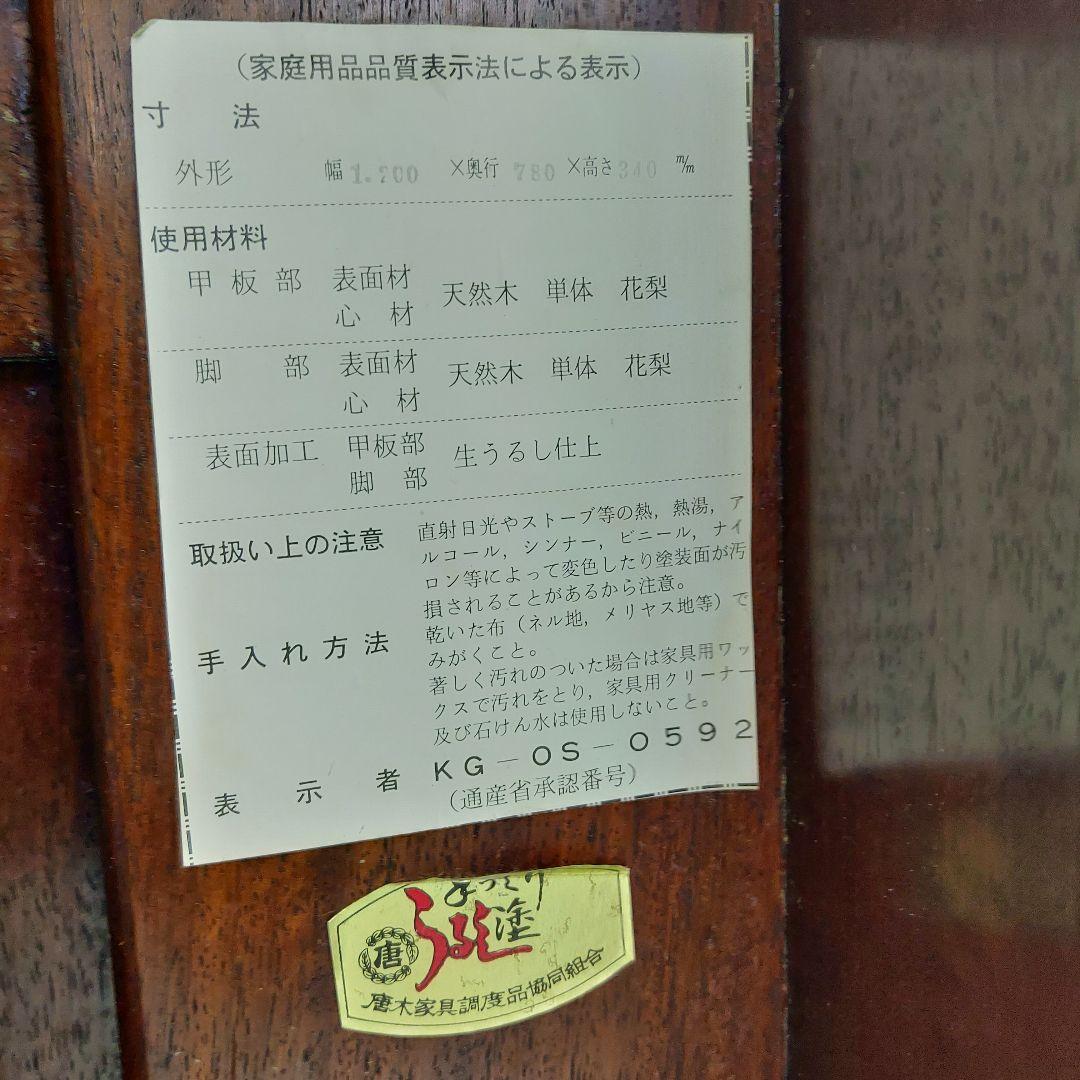 (家庭用品品質表示法による表示)
寸 法
外形 幅 1.200 ×奥行 780 ×高さ 340 m/m
使用材料
甲板部 表面材 心材 天然木 単体 花梨
脚部 表面材 心材 天然木 単体 花梨
表面加工 甲板部 脚部 生うるし仕上
取扱い上の注意 直射日光やストーブ等の熱,熱湯,ア
ルコール,シンナー,ビニール,ナイ
ロン等によって変色したり塗装面が汚
損されることがあるから注意。
手入れ方法 乾いた布(ネル地,メリヤス地等)で
みがくこと。
著しく汚れのついた場合は家具用ワッ
クスで汚れをとり,家具用クリーナー
及び石けん水は使用しないこと。
表示者 KG-OS-0592
(通産省承認番号)
うるし塗
唐
唐木家具調度品協同組合